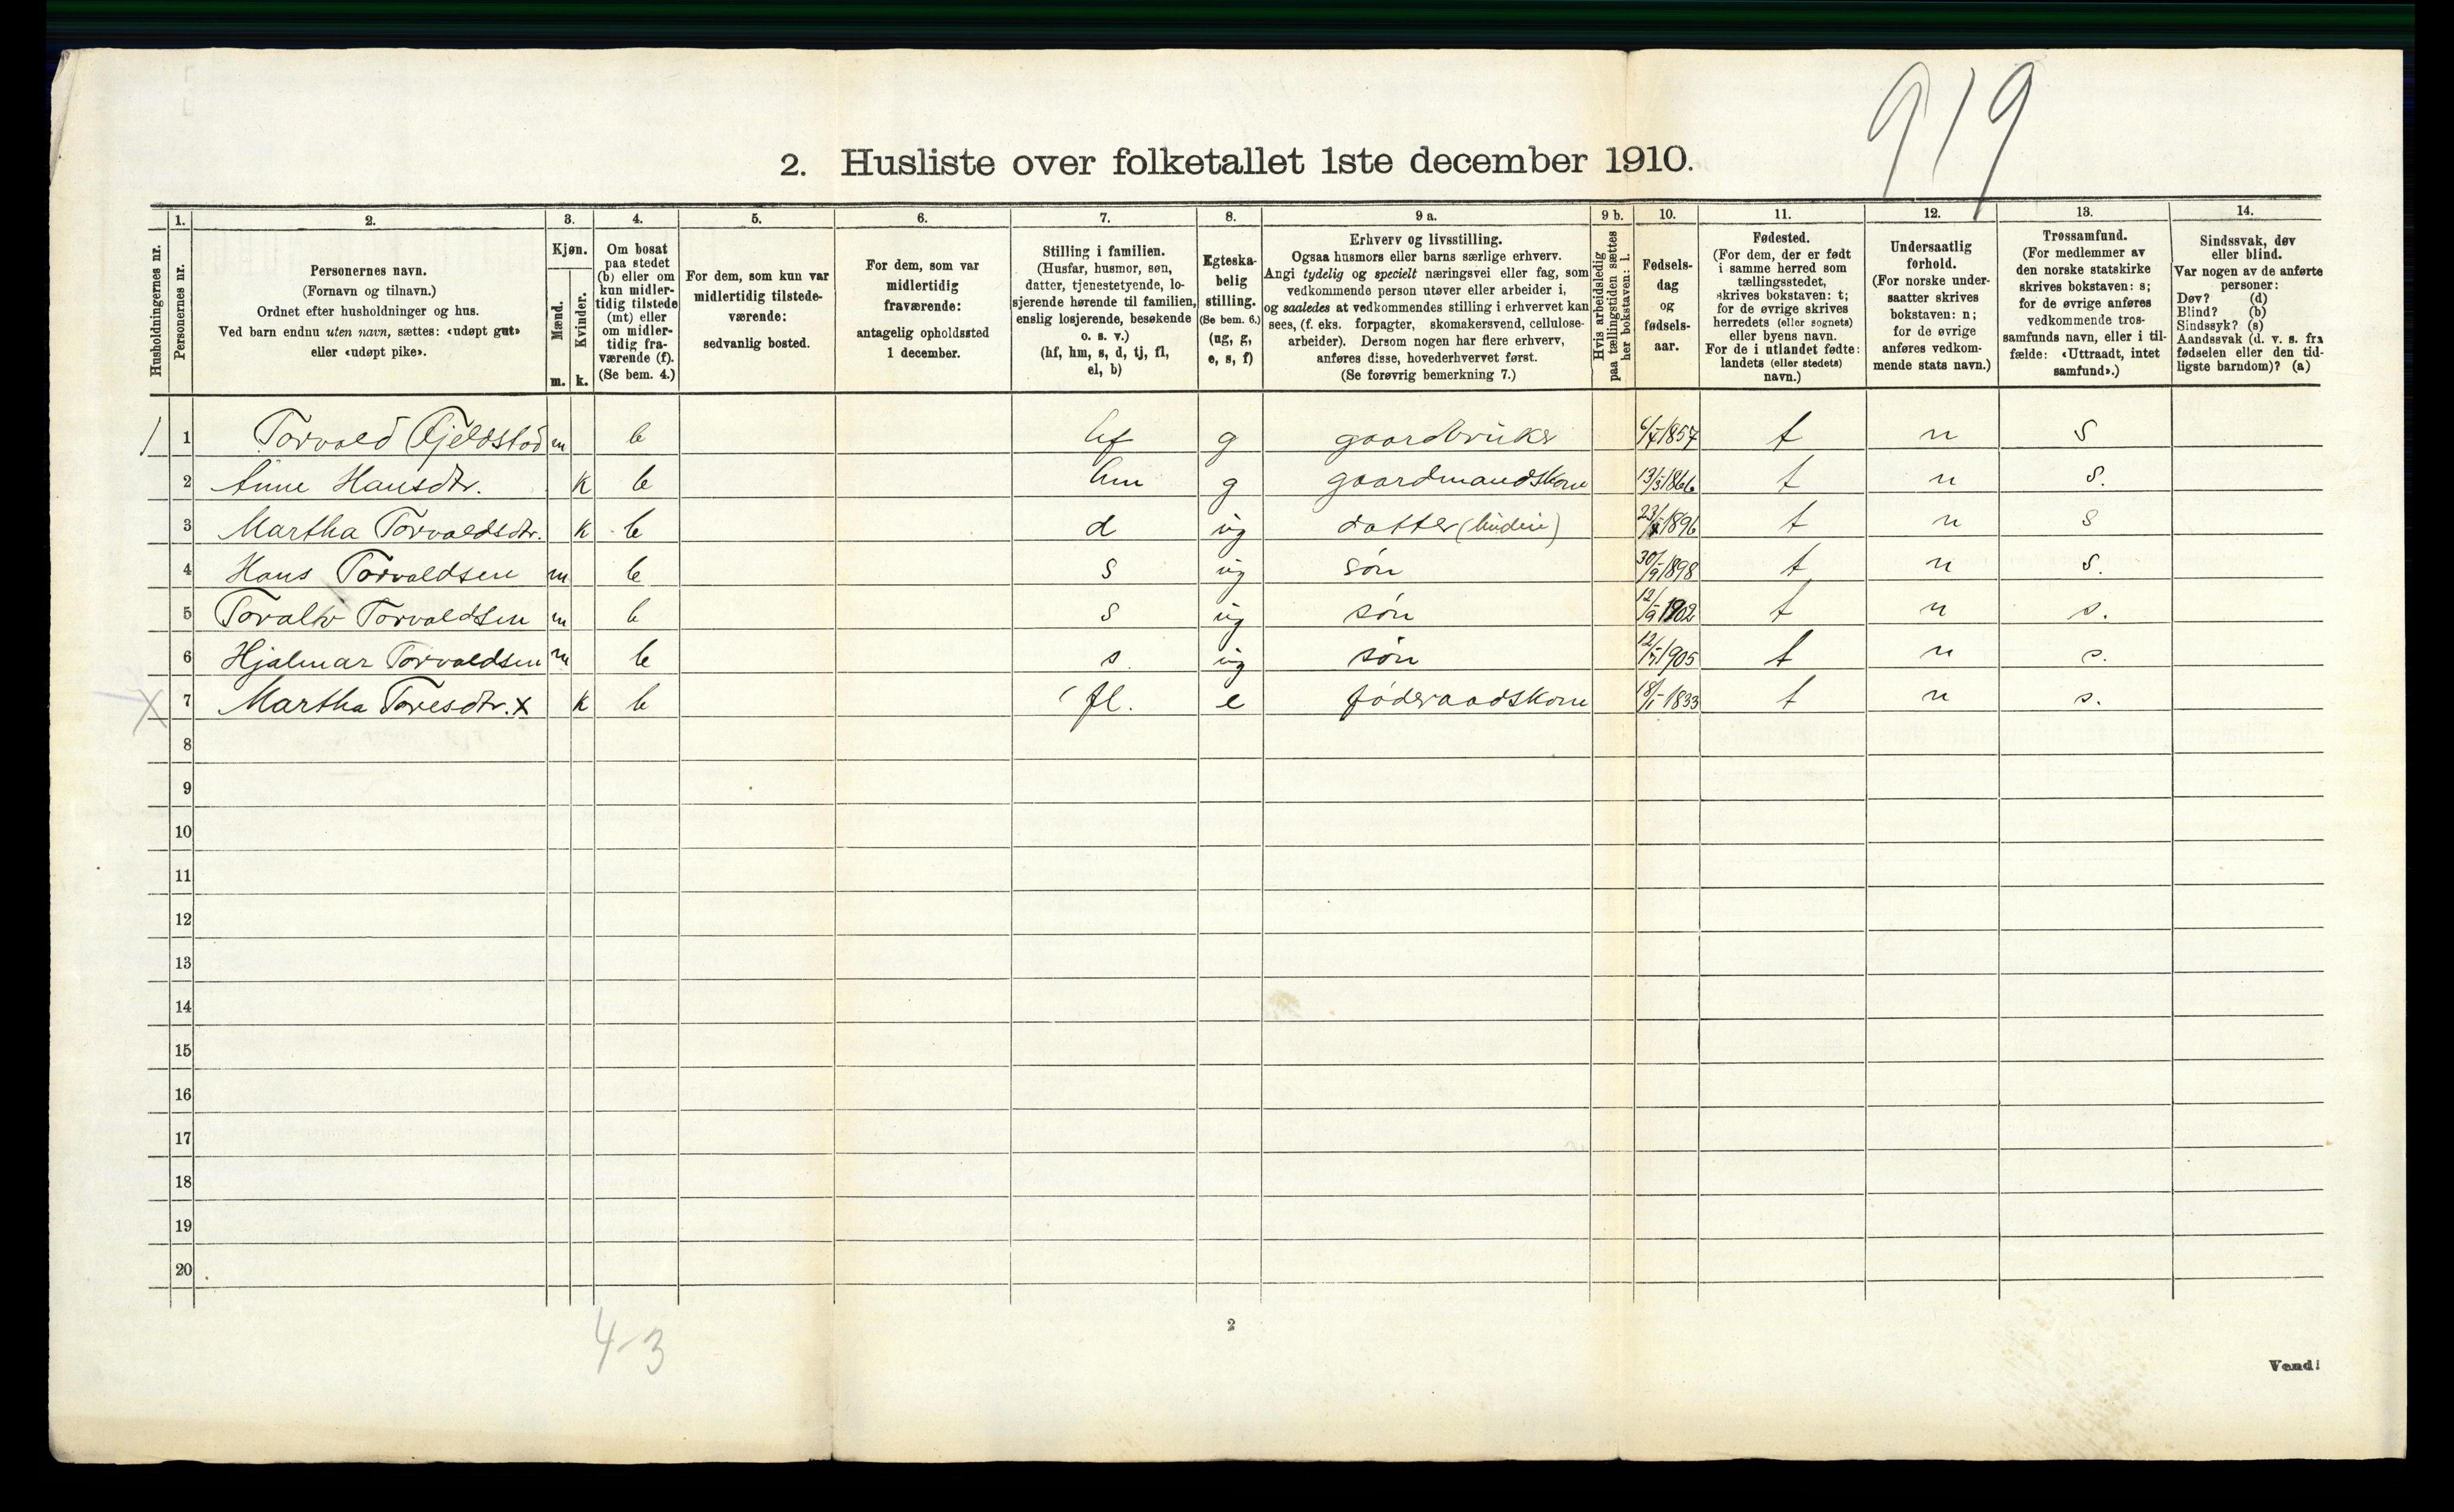 919
2. Husliste over folketallet 1ste december 1910.
Husholdningernes nr.
1.
Personernes nr.
2.
Personernes navn.
(Fornavn og tilnavn.)
Ordnet efter husholdninger og hus.
Ved barn endnu uten navn, sættes: «udøpt gut»
eller «udøpt pike».
3.
Kjøn.
Mænd.
Kvinder.
m. k.
4.
Om bosat
paa stedet
(b) eller om
kun midler-
tidig tilstede
(mt) eller
om midler-
tidig fra-
værende (f).
(Se bem. 4.)
5.
For dem, som kun var
midlertidig tilstede-
værende:
sedvanlig bosted.
6.
For dem, som var
midlertidig
fraværende:
antagelig opholdssted
1 december.
7.
Stilling i familien.
(Husfar, husmor, søn,
datter, tjenestetyende, lo-
sjerende hørende til familien,
enslig losjerende, besøkende
o. s. v.)
(hf, hm, s, d, tj, fl,
el, b)
8.
Egteska-
belig
stilling.
(Se bem. 6.)
(ug, g,
e, s, f)
9 a.
Erhverv og livsstilling.
Ogsaa husmors eller barns særlige erhverv.
Angi tydelig og specielt næringsvei eller fag, som
vedkommende person utøver eller arbeider i,
og saaledes at vedkommendes stilling i erhvervet kan
sees, (f. eks. forpagter, skomakersvend, cellulose-
arbeider). Dersom nogen har flere erhverv,
anføres disse, hovederhvervet først.
(Se forøvrig bemerkning 7.)
9 b.
Hvis arbeidsledig
paa tællingstiden sættes
her bokstaven: l.
10.
Fødsels-
dag
og
fødsels-
aar.
11.
Fødested.
(For dem, der er født
i samme herred som
tællingsstedet,
skrives bokstaven: t;
for de øvrige skrives
herredets (eller sognets)
eller byens navn.
For de i utlandet fødte:
landets (eller stedets)
navn.)
12.
Undersaatlig
forhold.
(For norske under-
saatter skrives
bokstaven: n;
for de øvrige
anføres vedkom-
mende stats navn.)
13.
Trossamfund.
(For medlemmer av
den norske statskirke
skrives bokstaven: s;
for de øvrige anføres
vedkommende tros-
samfunds navn, eller i til-
fælde: «Uttraadt, intet
samfund».)
14.
Sindssvak, døv
eller blind.
Var nogen av de anførte
personer:
Døv? (d)
Blind? (b)
Sindssyk? (s)
Aandssvak (d. v. s. fra
fødselen eller den tid-
ligste barndom)? (a)
1 1 Torvald Fjeldstad m b hf g gaardbruker 1857 t n s
2 Anne Hansdtr. k b hm g gaardmandskone 13/3 1866 t n s.
3 Martha Torvaldsdtr. k b d ug datter 1896 t n s
4 Hans Torvaldsen m b s ug søn 30/9 1898 t n s.
5 Toralv Torvaldsen m b s ug søn 12/9 1902 t n s.
6 Hjalmar Torvaldsen m b s ug søn 12/7 1905 t n s.
X 7 Martha Toresdtr. x k b fl. e føderaadskone 18/1 1833 t n s.
8
9
10
11
12
13
14
15
16
17
18
19
20
4-3
2
Vend!